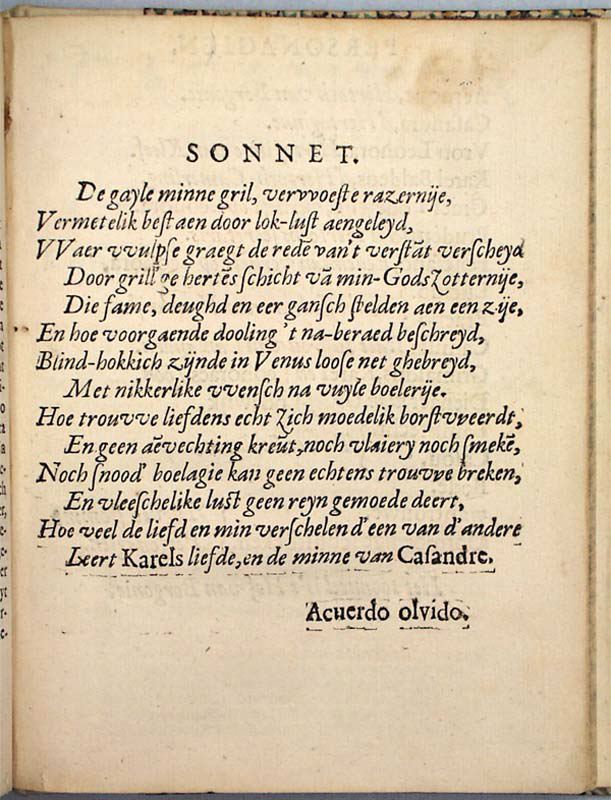 SONNET.
De gayle minne gril, vervvoeste razernije,
Vermetelik bestaen door lok-lust aengeleyd,
VVaer vvulpse graegt de redē van't verstāt verscheyd
Door grill'ge hertēs schicht vā min-Gods zotternije,
Die fame, deughd en eer gansch stelden aen een zije,
En hoe voorgaende dooling 't na-beraed beschreyd,
Blind-hokkich zijnde in Venus loose net ghebreyd,
Met nikkerlike vvensch na vuyle boelerije.
Hoe trouvve liefdens echt zich moedelik borstvveerdt,
En geen aēvechting kreūt, noch vlaiery noch smekē,
Noch snood' boelagie kan geen echtens trouvve breken,
En vleeschelike lust geen reyn gemoede deert,
Hoe veel de liefd en min verschelen d'een van d'andere
Leert Karels liefde, en de minne van Casandre.
Acuerdo olvido.